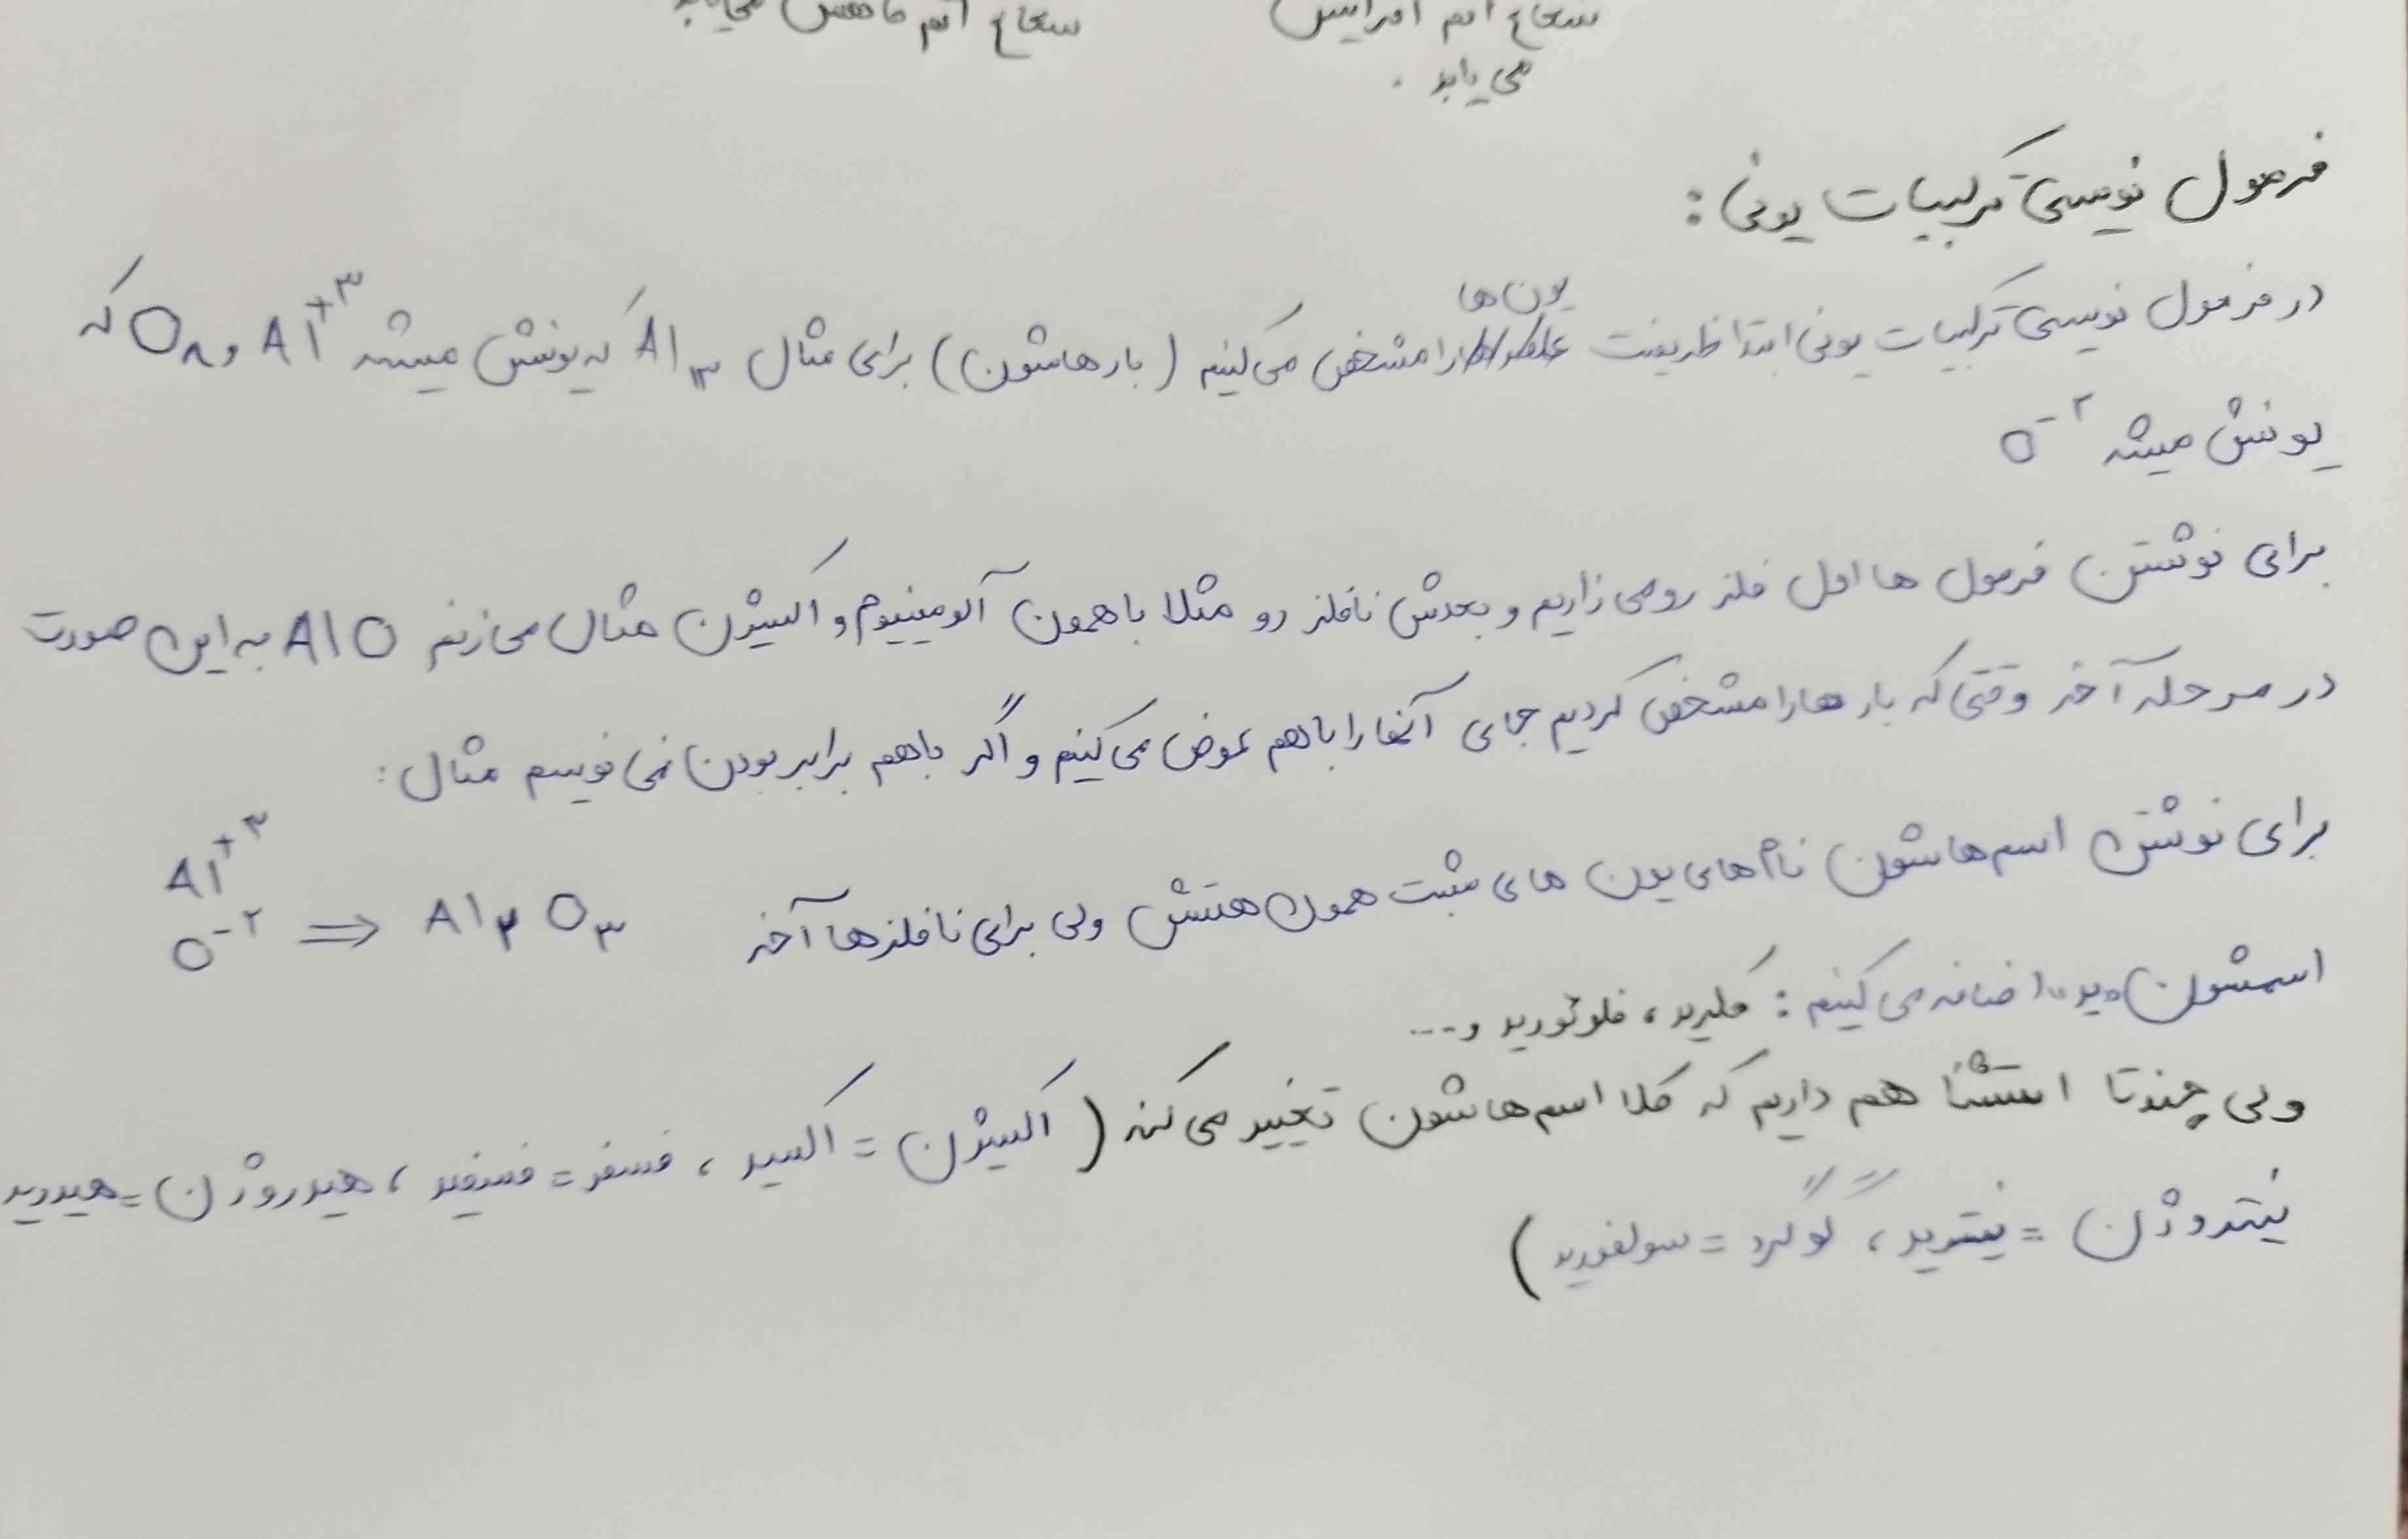 شعاع اتم افزایش شعاع اتم کاهش می‌یابد
می یابد .
فرمول نویسی ترکیبات یونی :
یون ها
در فرمول نویسی ترکیبات یونی ابتدا ظرفیت را مشخص می کنیم ( بارهاشون ) برای مثال Al۱۳ که یونش میشه Al+۳ و O۸ که
یونش میشه O-۲
برای نوشتن فرمول ها اول فلز رو می زاریم و بعدش نافلز رو مثلا با همون آلومینیوم و اکسیژن مثال می زنم AlO به این صورت
در مرحله آخر وقتی که بارها را مشخص کردیم جای آنها را با هم عوض می کنیم و اگر باهم برابر بودن نمی نویسم مثال :
برای نوشتن اسم هاشون نام های یون های مثبت همون هستش ولی برای نافلزها آخر
Al+۳
O-۲ ⇒ Al۲ O۳
اسمشون «ید» اضافه می کنیم : کلرید ، فلوئورید و ...
ولی چندتا استثنا هم داریم که کلا اسم هاشون تغییر می کنه ( اکسیژن = اکسید ، فسفر = فسفید ، هیدروژن = هیدرید
نیتروژن = نیترید ، گوگرد = سولفورید )